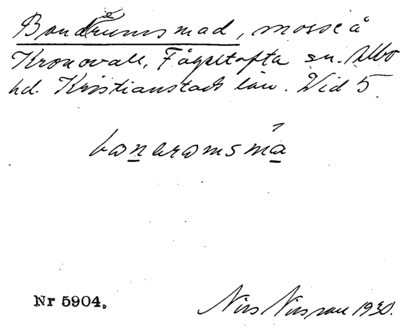 Bondrumsmad, mosse å
Kronovall, Fågeltofta sn. Albo
hd. Kristianstads län. Vid 5
Nr 5904.
Nils Nilsson 1930.